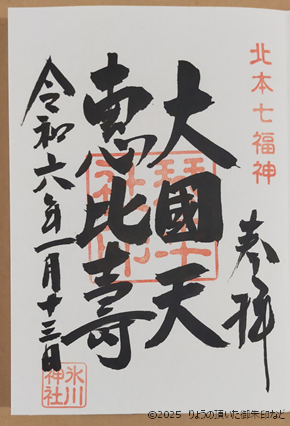 北本七福神
奉拝
大國天
恵比壽
令和六年一月十三日
氷川
神社
©2025 りょうの頂いた御朱印など